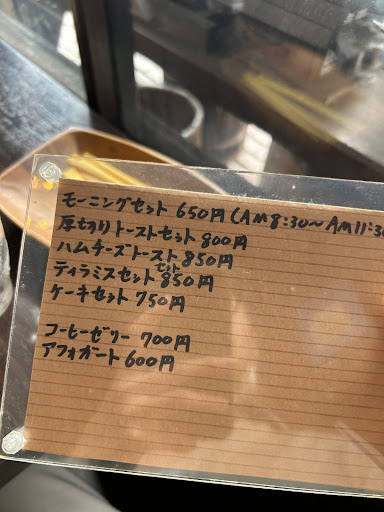 モーニングセット 650円 (AM8:30〜AM11:30
厚切りトーストセット 800円
ハムチーズトーストセット 850円
ティラミスセット 850円
ケーキセット 750円
コーヒーゼリー 700円
アフォガート 600円